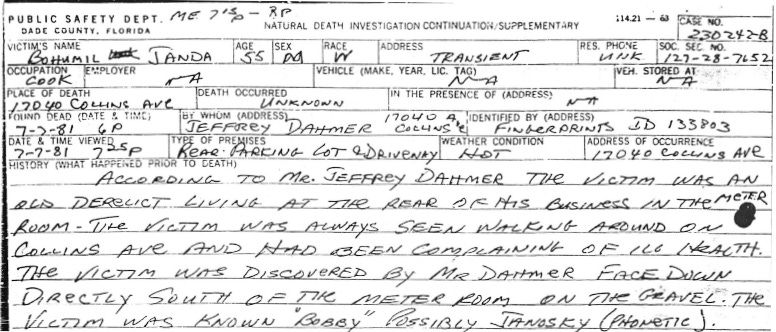 PUBLIC SAFETY DEPT. ME 715p - RP
DADE COUNTY, FLORIDA NATURAL DEATH INVESTIGATION CONTINUATION/SUPPLEMENTARY 114.21 — 63 CASE NO. 230242-B
VICTIM'S NAME BOHUMIL JANDA AGE 55 SEX M RACE W ADDRESS TRANSIENT RES. PHONE UNK SOC. SEC. NO. 127-28-7652
OCCUPATION COOK EMPLOYER NA VEHICLE (MAKE, YEAR, LIC. TAG) NA VEH. STORED AT NA
PLACE OF DEATH 17040 COLLINS AVE DEATH OCCURRED UNKNOWN IN THE PRESENCE OF (ADDRESS) NA
FOUND DEAD (DATE & TIME) 7-7-81 6P BY WHOM (ADDRESS) JEFFREY DAHMER 17040 COLLINS IDENTIFIED BY (ADDRESS) FINGERPRINTS ID 133803
DATE & TIME VIEWED 7-7-81 725P TYPE OF PREMISES REAR PARKING LOT & DRIVEWAY WEATHER CONDITION HOT ADDRESS OF OCCURRENCE 17040 COLLINS AVE
HISTORY (WHAT HAPPENED PRIOR TO DEATH)
ACCORDING TO MR. JEFFREY DAHMER THE VICTIM WAS AN
OLD DERELICT LIVING AT THE REAR OF HIS BUSINESS IN THE METER
ROOM - THE VICTIM WAS ALWAYS SEEN WALKING AROUND ON
COLLINS AVE AND HAD BEEN COMPLAINING OF ILL HEALTH.
THE VICTIM WAS DISCOVERED BY MR DAHMER FACE DOWN
DIRECTLY SOUTH OF THE METER ROOM ON THE GRAVEL. THE
VICTIM WAS KNOWN "BOBBY" POSSIBLY JANOSKY (PHONETIC).